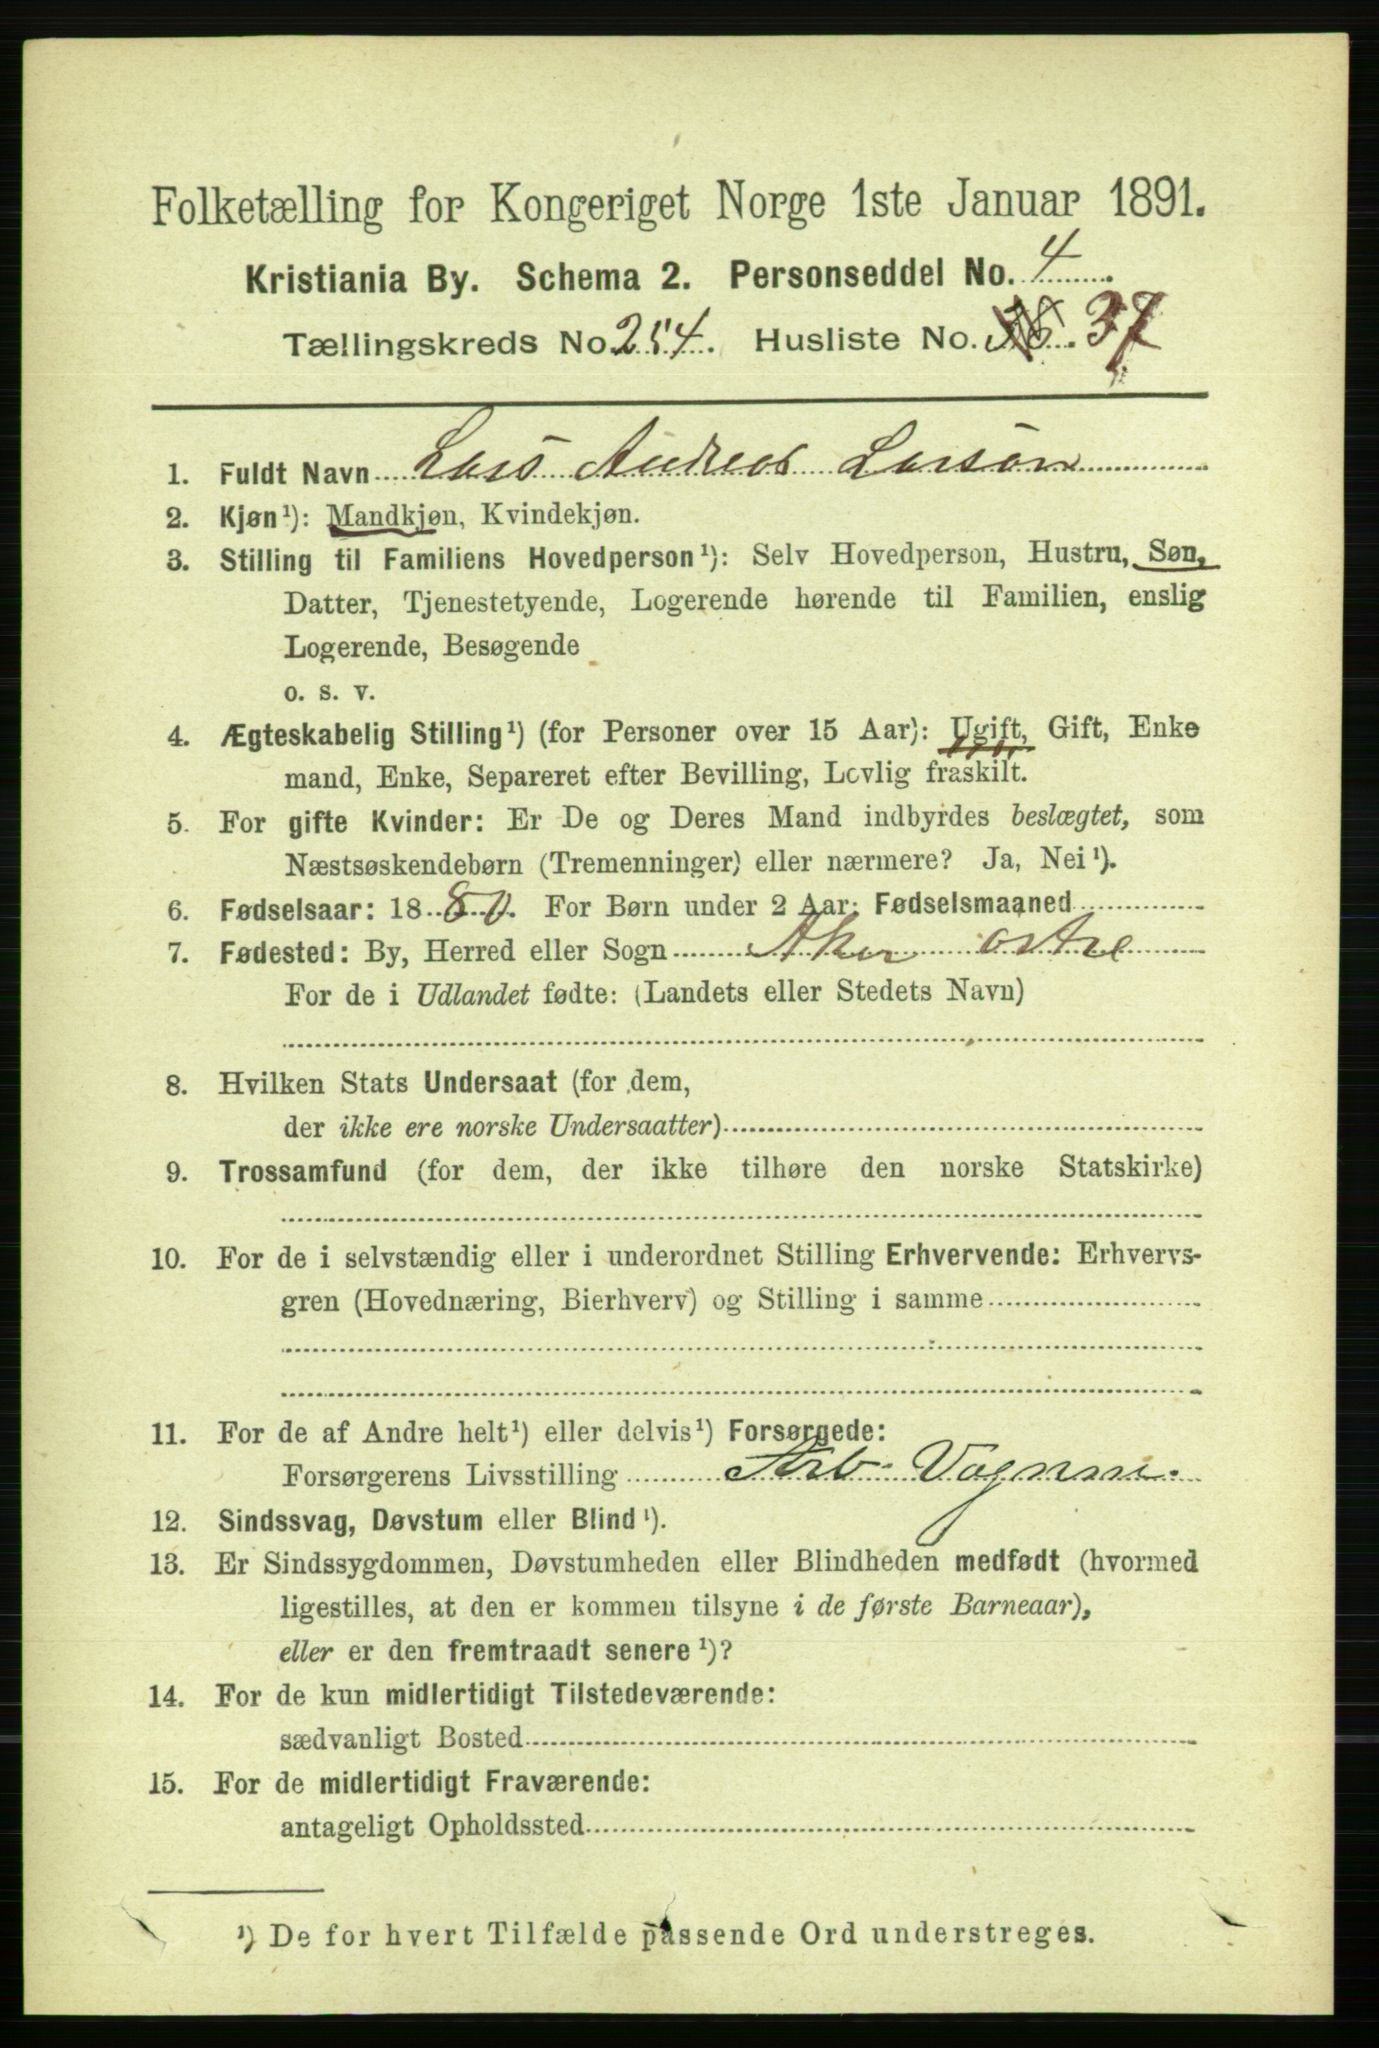 Folketælling for Kongeriget Norge 1ste Januar 1891.
Kristiania By. Schema 2. Personseddel No. 4
Tællingskreds No. 254. Husliste No. 36. 37
1. Fuldt Navn Lars Andreas Larsøn
2. Kjøn¹): Mandkjøn, Kvindekjøn.
3. Stilling til Familiens Hovedperson¹): Selv Hovedperson, Hustru, Søn,
Datter, Tjenestetyende, Logerende hørende til Familien, enslig
Logerende, Besøgende
o. s. v.
4. Ægteskabelig Stilling¹) (for Personer over 15 Aar): Ugift, Gift, Enke
mand, Enke, Separeret efter Bevilling, Lovlig fraskilt.
5. For gifte Kvinder: Er De og Deres Mand indbyrdes beslægtet, som
Næstsøskendebørn (Tremenninger) eller nærmere? Ja, Nei¹).
6. Fødselsaar: 1880. For Børn under 2 Aar: Fødselsmaaned
7. Fødested: By, Herred eller Sogn Aker østre
For de i Udlandet fødte: (Landets eller Stedets Navn)
8. Hvilken Stats Undersaat (for dem,
der ikke ere norske Undersaatter)
9. Trossamfund (for dem, der ikke tilhøre den norske Statskirke)
10. For de i selvstændig eller i underordnet Stilling Erhvervende: Erhvervs-
gren (Hovednæring, Bierhverv) og Stilling i samme
11. For de af Andre helt¹) eller delvis¹) Forsørgede:
Forsørgerens Livsstilling Arb.
12. Sindssvag, Døvstum eller Blind¹).
13. Er Sindssygdommen, Døvstumheden eller Blindheden medfødt (hvormed
ligestilles, at den er kommen tilsyne i de første Barneaar),
eller er den fremtraadt senere¹)?
14. For de kun midlertidigt Tilstedeværende:
sædvanligt Bosted
15. For de midlertidigt Fraværende:
antageligt Opholdssted
¹) De for hvert Tilfælde passende Ord understreges.